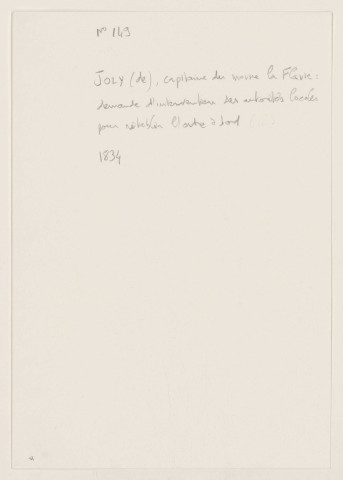 N° 149
JOLY (de), capitaine du navire la Flavie :
demande d'intervention des autorités locales
pour rétablir l'ordre à bord
1834